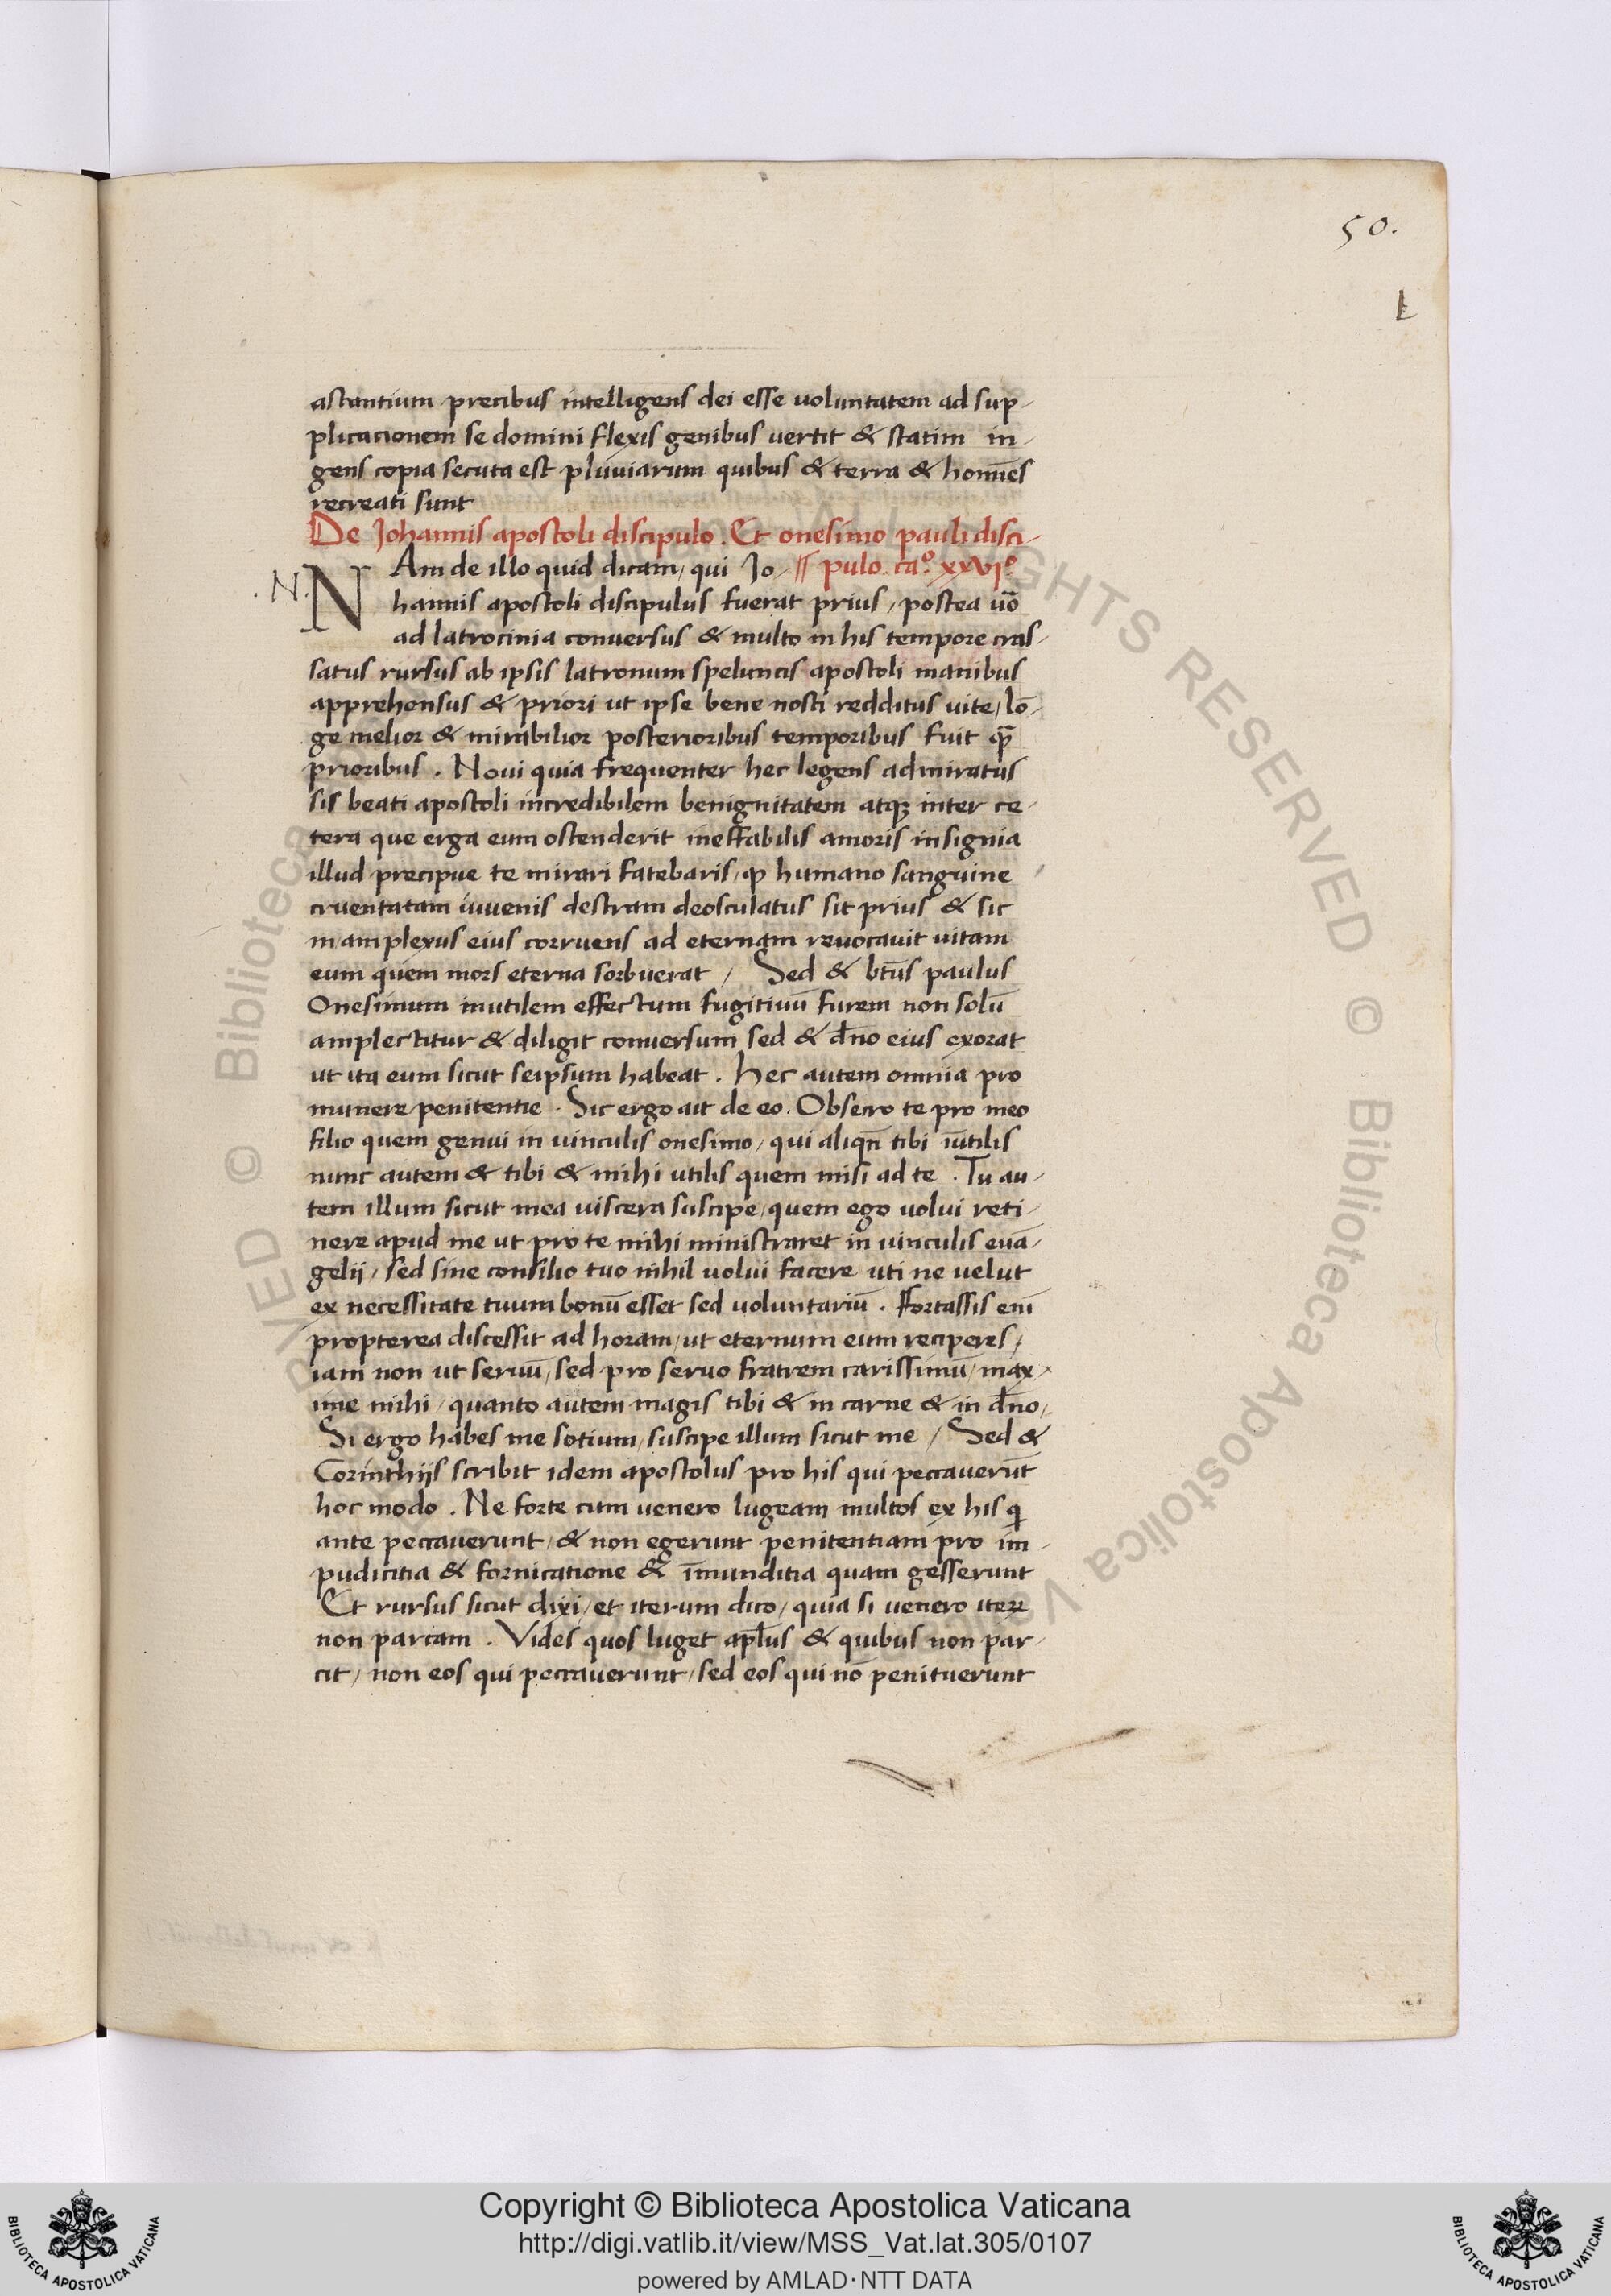 50.
L
astantium precibus intelligens dei esse voluntatem ad sup-
plicacionem se domini flexis genibus vertit & statim in-
gens copia secuta est pluviarum quibus & terra & homīes
recreati sunt
De Johannis apostoli discipulo. Et onesimo pauli disci-
pulo. ca.º xxvjº
.N.
NAm de illo quid dicam, qui Jo-
hannis apostoli discipulus fuerat prius, postea uō
ad latrocinia conversus & multo in his tempore cras-
satus rursus ab ipsis latronum speluncis apostoli manibus
apprehensus & priori ut ipse bene nosti redditus vite, lō-
ge melior & mirabilior posterioribus temporibus fuit qᷓ
prioribus. Novi quia frequenter hec legens admiratus
sis beati apostoli incredibilem benignitatem atqꝫ inter ce-
tera que erga eum ostenderit ineffabilis amoris insignia
illud precipue te mirari fatebaris, ꝙ humano sanguine
cruentatam iuvenis destram deosculatus sit prius & sic
in amplexus eius corruens ad eternam revocavit vitam
eum quem mors eterna sorbuerat / Sed & bt̄us paulus
Onesimum inutilem effectum fugitivū furem non solū
amplectitur & diligit conversum sed & dn̄o eius exorat
ut ita eum sicut seipsum habeat. Hec autem omnia pro
munere penitentie. Sic ergo ait de eo. Obsecro te pro meo
filio quem genui in vinculis onesimo, qui aliqn̄ tibi īutilis
nunc autem & tibi & mihi utilis quem misi ad te. Tu au-
tem illum sicut mea viscera suscipe, quem ego volui reti-
nere apud me ut pro te mihi ministraret in vinculis evā-
gelii, sed sine consilio tuo nihil volui facere uti ne velut
ex necessitate tuum bonū esset sed voluntariū. Fortassis enī
propterea discessit ad horam, ut eternum eum reciperes,
iam non ut servū, sed pro servo fratrem carissimū, max-
ime mihi, quanto autem magis tibi & in carne & in dn̄o,
Si ergo habes me sotium, suscipe illum sicut me / Sed &
Corinthijs scribit idem apostolus pro his qui peccaverūt
hoc modo. Ne forte cum venero lugeam multos ex his q̄
ante peccaverunt, & non egerunt penitentiam pro im-
pudicitia & fornicatione & īmunditia quam gesserunt
Et rursus sicut dixi, et iterum dico, quia si venero iterꝝ
non parcam. Vides quos luget apl̄us & quibus non par-
cit, non eos qui peccaverunt, sed eos qui nō penituerunt
ALL RIGHTS RESERVED © Biblioteca Apostolica Vaticana
BIBLIOTECA APOSTOLICA VATICANA
Copyright © Biblioteca Apostolica Vaticana
http://digi.vatlib.it/view/MSS_Vat.lat.305/0107
powered by AMLAD·NTT DATA
BIBLIOTECA APOSTOLICA VATICANA